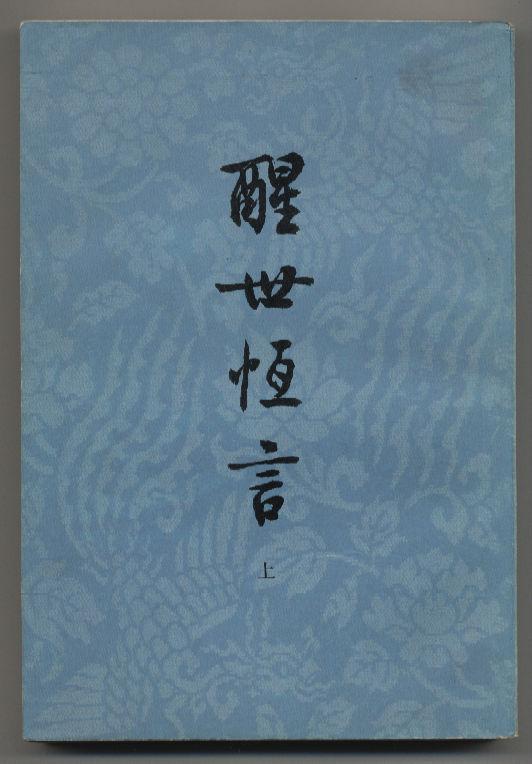 醒世恆言
上